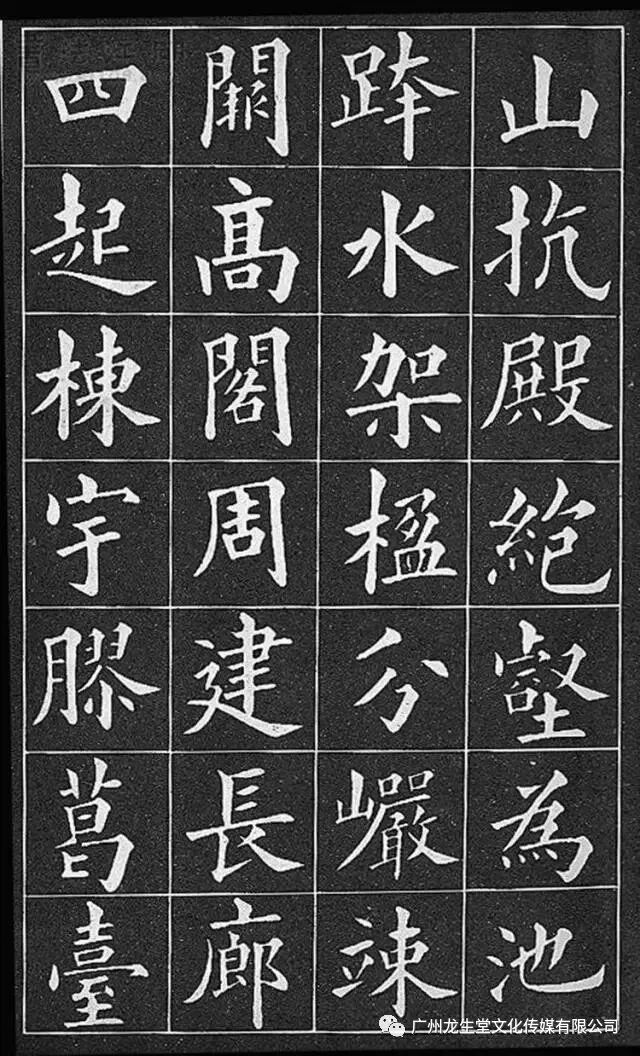 山抗殿絶壑為池
跨水架楹分巗竦
闕高閣周建長廊
四起棟宇膠葛臺
广州龙生堂文化传媒有限公司